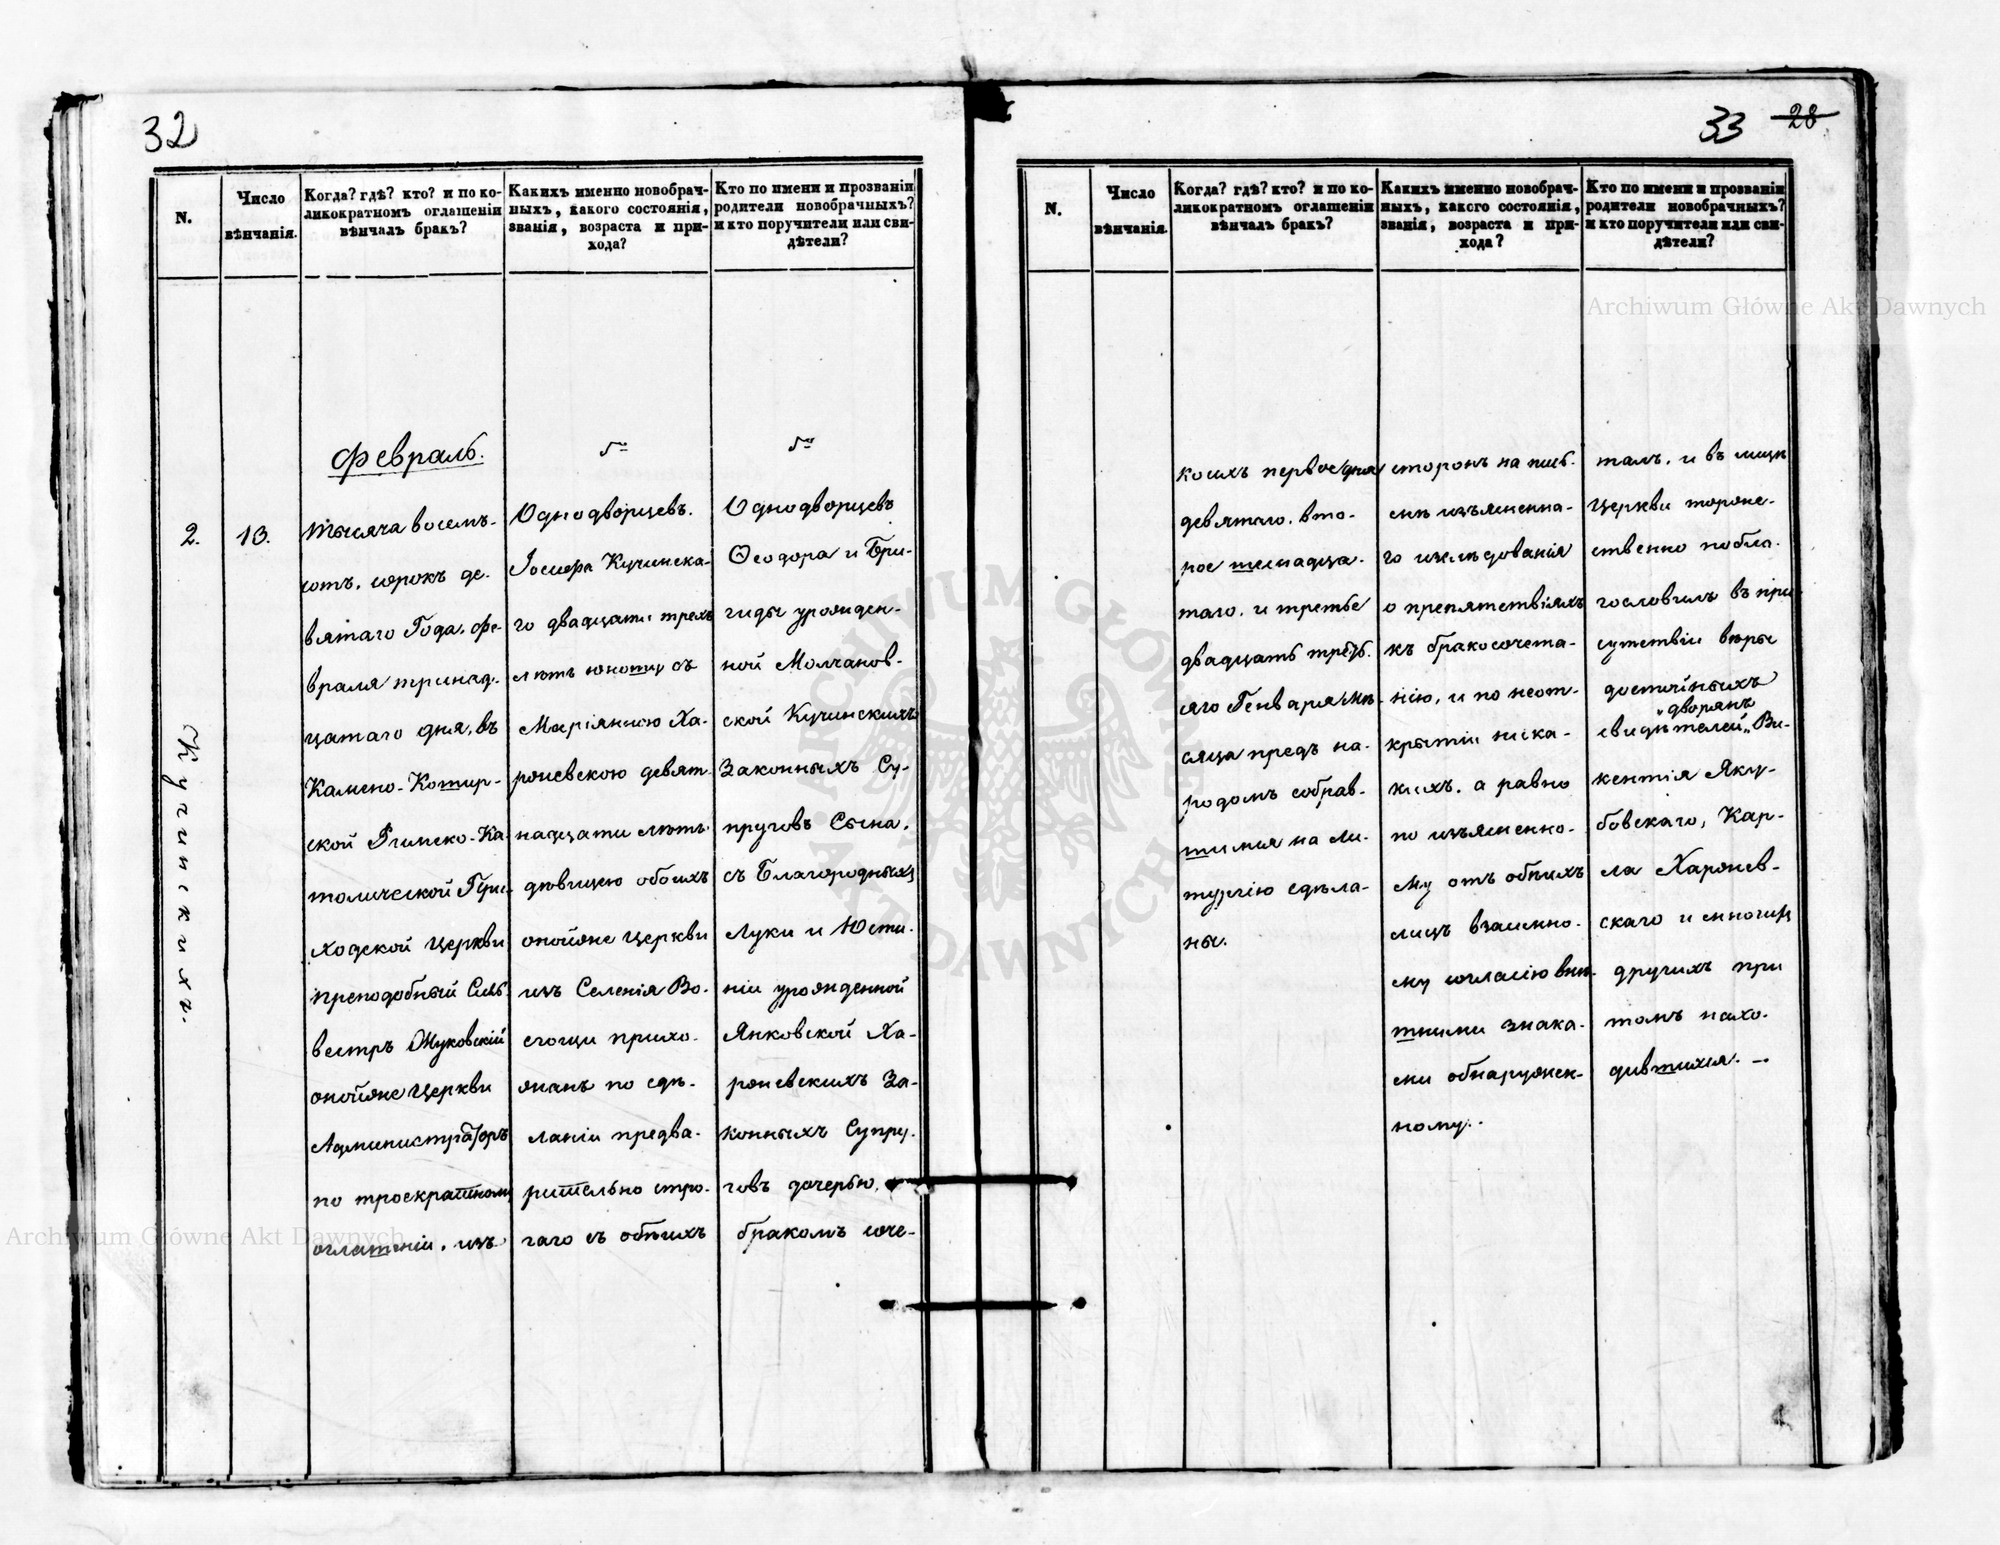 32
N.
Число
вѣнчанія.
Когда? гдѣ? кто? и по ко-
ликократномъ оглашеніи
вѣнчалъ бракъ?
Какихъ именно новобрач-
ныхъ, какого состоянія,
званія, возраста и при-
хода?
Кто по имени и прозванію
родители новобрачныхъ?
и кто поручители или сви-
дѣтели?
2.
13.
Кучинскихъ.
Февраль.
тысяча восемъ-
сотъ, сорокъ де-
вятаго Года, фе-
враля тринад-
цатаго дня, въ
Камено-Кошир-
ской Римско-Ка-
толической При-
ходской Церкви
преподобный Силь-
вестръ Жуковскій
онойже Церкви
Администраторъ
по троекратномъ
оглашеніи, изъ
Однодворцевъ.
Іосифа Кучинска-
го двадцати трехъ
лѣтъ юношу съ
Маріянною Ха-
роневскою девят-
надцати лѣтъ
дѣвицею обоихъ
онойже Церкви
изъ Селенія Во-
егощи прихо-
жанъ по сдѣ-
ланіи предва-
рительно стро-
гаго съ обѣихъ
Однодворцевъ
Ѳеодора и Бри-
гиды урожден-
ной Молчанов-
ской Кучинскихъ
Законныхъ Су-
пруговъ Сына,
съ Благородныхъ
Луки и Юсти-
ніи урожденной
Янковской Ха-
роневскихъ За-
конныхъ Супру-
говъ дочерью,
бракомъ соче-
33 28
N.
Число
вѣнчанія.
Когда? гдѣ? кто? и по ко-
ликократномъ оглашеніи
вѣнчалъ бракъ?
Какихъ именно новобрач-
ныхъ, какого состоянія,
званія, возраста и при-
хода?
Кто по имени и прозванію
родители новобрачныхъ?
и кто поручители или сви-
дѣтели?
коихъ первое дня
девятаго, вто-
рое шеснадца-
таго, и третье
двадцать треть-
яго Генваря мѣ-
сяца предъ на-
родомъ собрав-
шимся на ли-
тургію сдѣла-
ны.
сторонъ на пись-
мѣ изъясненна-
го изслѣдованія
о препятствіяхъ
къ бракосочета-
нію, и по неот-
крытіи ника-
кихъ, а равно
по изъясненно-
му отъ обѣихъ
лицъ взаимно-
му согласію внѣ-
шними знака-
ми обнаружен-
ному.
талъ, и въ лицѣ
Церкви торже-
ственно побла-
гословилъ въ при-
сутствіи вѣры
достойныхъ
дворянъ
свидѣтелей „ Ви-
кентія Яку-
бовскаго, Кар-
ла Харонев-
скаго и многихъ
другихъ при
томъ нахо-
дившихся. —
Archiwum Główne Akt Dawnych
Archiwum Główne Akt Dawnych
ARCHIWUM GŁÓWNE
AKT DAWNYCH